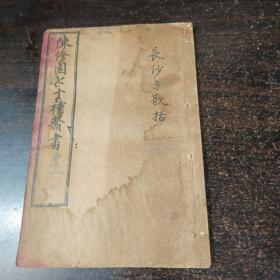 長沙方歌括
陳修園七十二種醫書